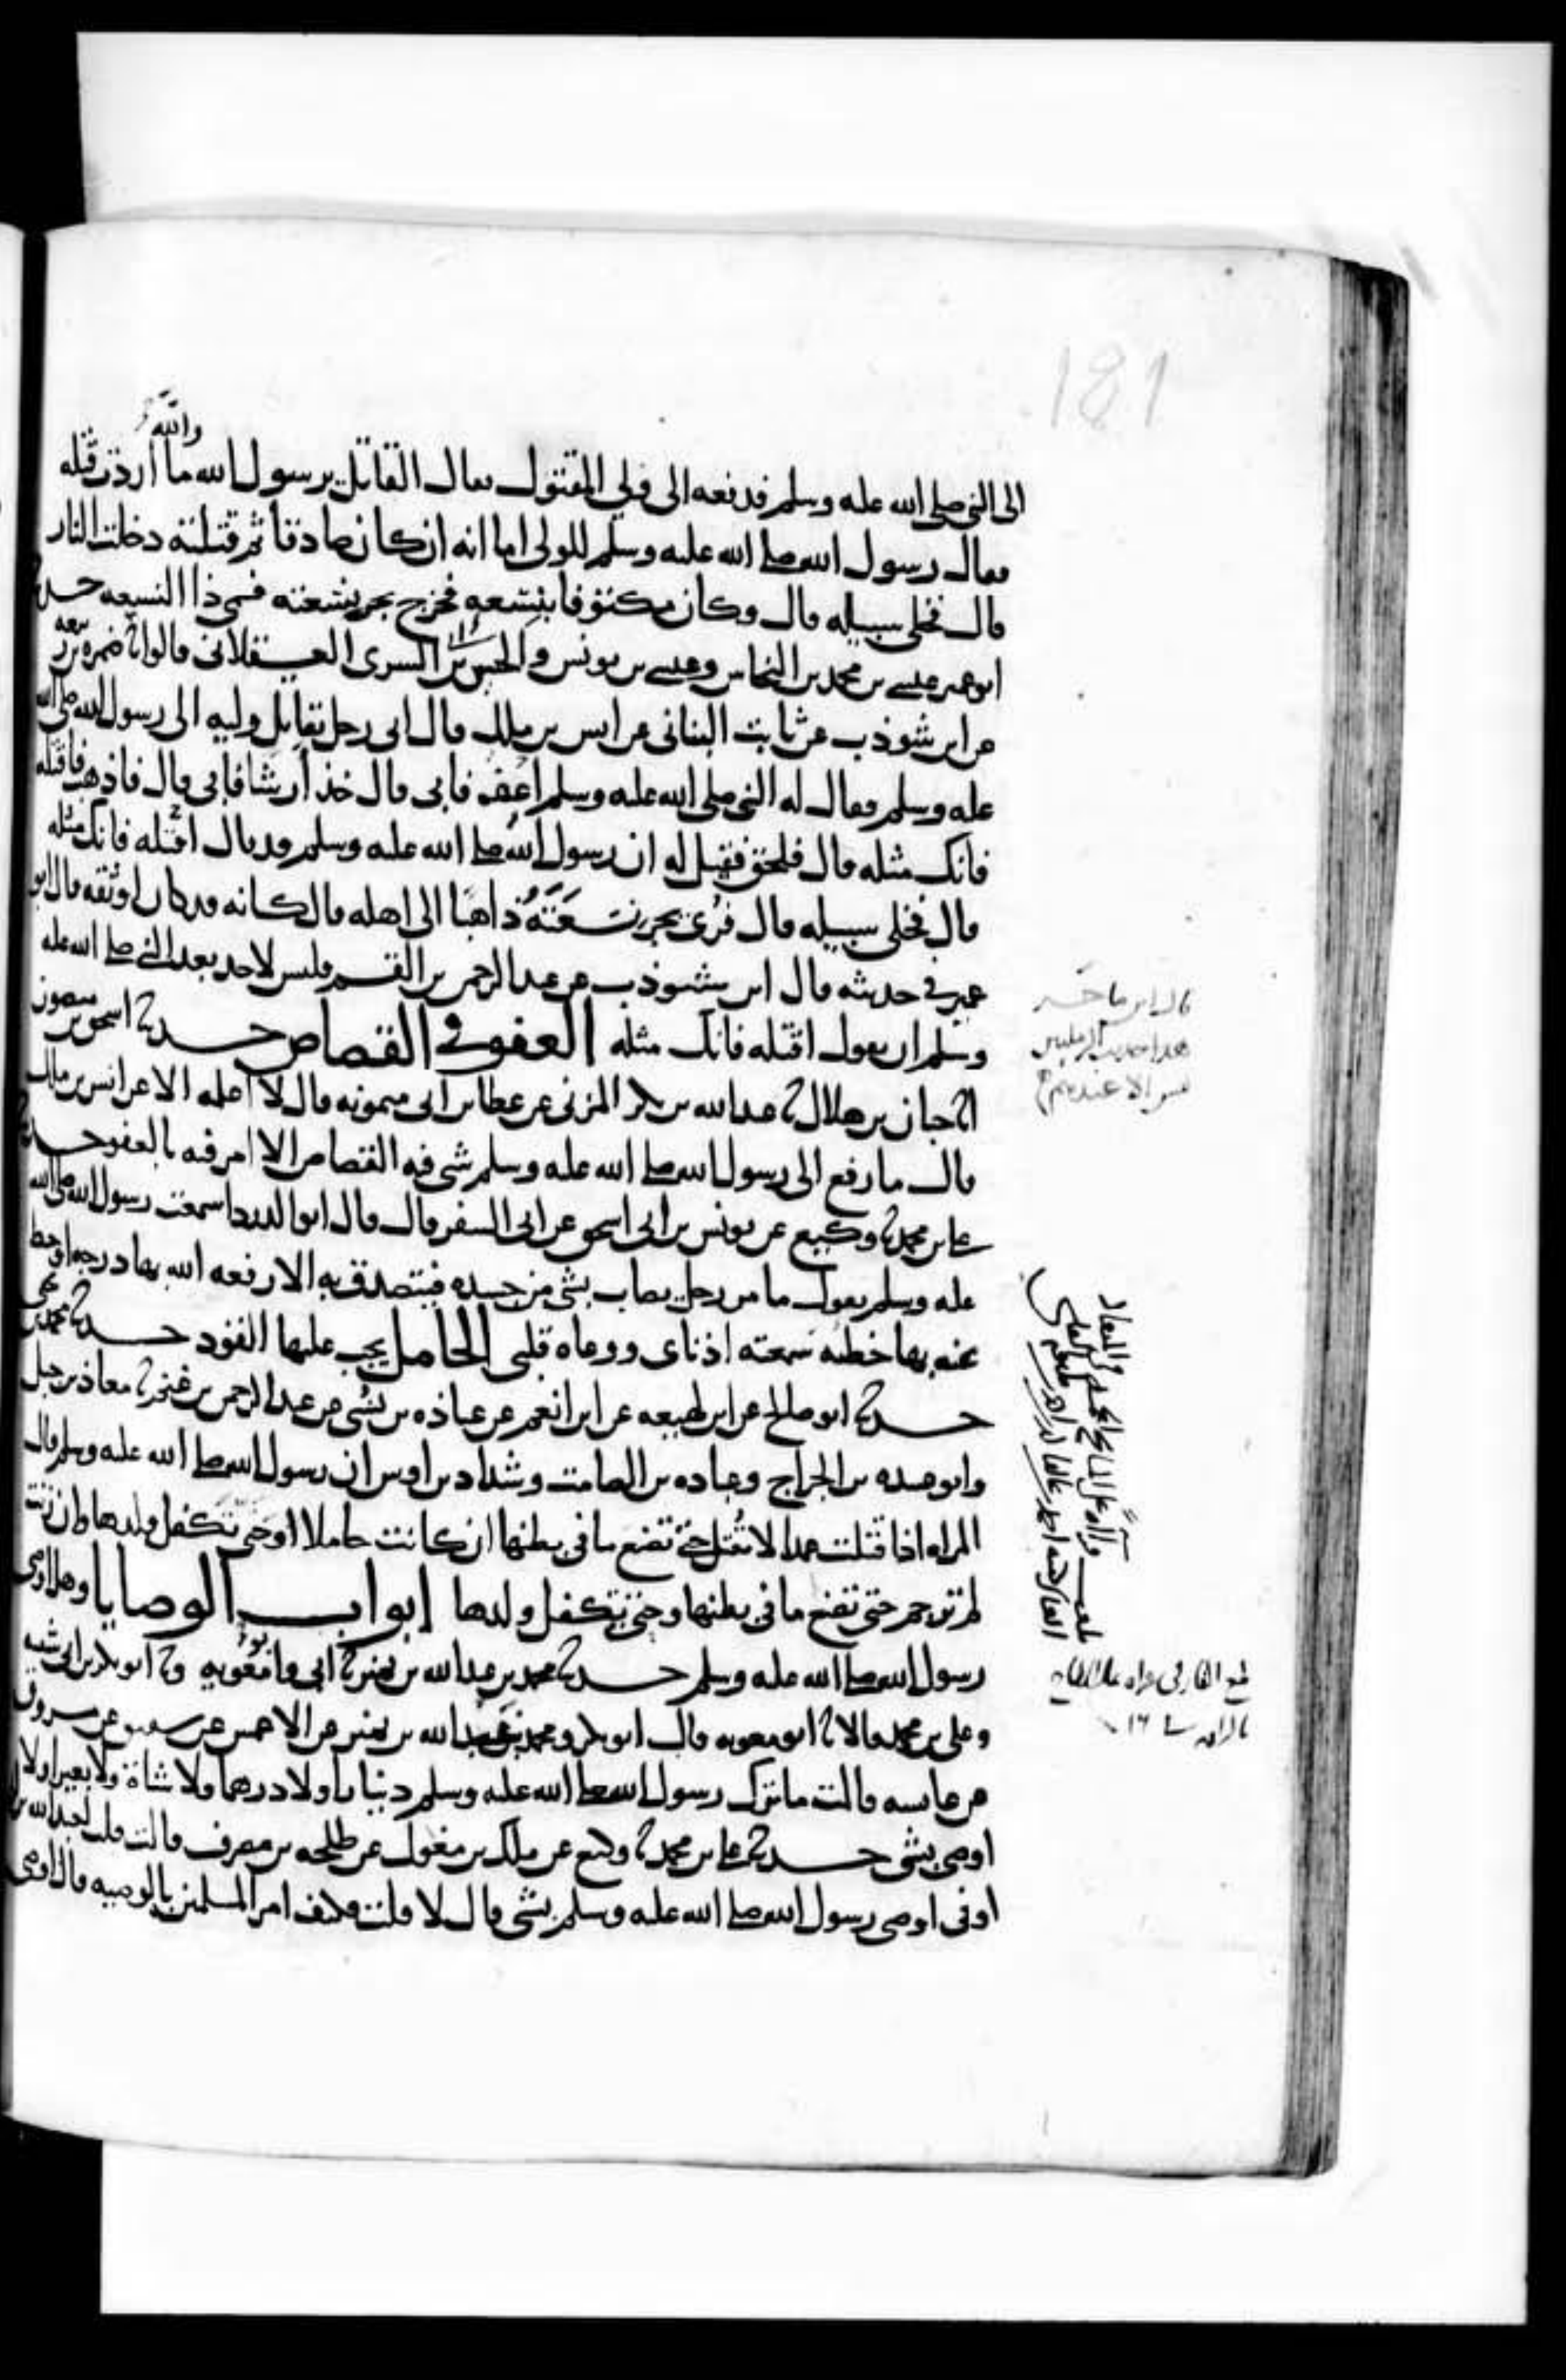 181
والله
الى النبي صلى الله عليه وسلم فدفعه الى ولي المقتول فقال القاتل يرسول الله ما اردت قتله
فقال رسول الله صلى الله عليه وسلم للولي اما انه ان كان صادقا ثم قتلته دخلت النار
قال فخلى سبيله قال وكان مكتوفا بنسعه فخرج يجر نسعته فسمي ذا النسعه حدثنا
ابو عمير عيسى بن محمد بن النحاس وعيسى بن يونس والحسين بن ابي السرى العسقلاني قالوا ثنا ضمره بن ربيعه
عن ابن شوذب عن ثابت البناني عن انس بن ملك قال اتى رجل بقاتل وليه الى رسول الله صلى الله
عليه وسلم فقال له النبي صلى الله عليه وسلم اعف فابى قال خذ ارشا فابى قال فاذهب فاقتله
فانك مثله قال فلحق فقيل له ان رسول الله صلى الله عليه وسلم قد قال اقتله فانك مثله
قال فخلى سبيله قال فرئي يجر نسعته ذاهبا الى اهله قال كانه قد كان اوثقه قال ابو
عمير في حديثه قال ابن شوذب عن عبد الرحمن بن القسم فليس لاحد بعد النبي صلى الله عليه
وسلم ان يقول اقتله فانك مثله العفو في القصاص حدثنا اسحق بن منصور
انا حبان بن هلال ثنا عبد الله بن بكر المزني عن عطا بن ابي ميمونه قال لا اعلمه الا عن انس بن ملك
قال ما رفع الى رسول الله صلى الله عليه وسلم شي فيه القصاص الا امر فيه بالعفو حدثنا
علي بن محمد ثنا وكيع عن يونس بن ابي اسحق عن ابي السفر قال قال ابو الدردا سمعت رسول الله صلى الله
عليه وسلم يقول ما من رجل يصاب بشي من جسده فيتصدق به الا رفعه الله بها درجه او حط
عنه بها خطئه سمعته اذناى ووعاه قلبي الحامل يجب عليها القود حدثنا محمد بن يحيى
حدثنا ابو صالح عن ابن لهيعه عن ابن انعم عن عباده بن نسي عن عبد الرحمن بن غنم ثنا معاذ بن جبل
وابو عبيده بن الجراح وعباده بن الصامت وشداد بن اوس ان رسول الله صلى الله عليه وسلم قال
المراه اذا قتلت عمدا لا تقتل حتى تضع ما في بطنها ان كانت حاملا او حتى تكفل ولدها وان زنت
لم ترجم حتى تضع ما في بطنها وحتى تكفل ولدها ابواب الوصايا وهل اوصى
رسول الله صلى الله عليه وسلم حدثنا محمد بن عبد الله بن نمير ثنا ابي وابو معويه وثنا ابو بكر بن ابي شيبه
وعلي بن محمد قالا ثنا ابو معويه قال ابو بكر ومحمد بن عبد الله بن نمير عن الاعمش عن شقيق عن مسروق
عن عايشه قالت ما ترك رسول الله صلى الله عليه وسلم دينارا ولا درهما ولا شاة ولا بعيرا ولا
اوصى بشي حدثنا علي بن محمد ثنا وكيع عن ملك بن مغول عن طلحه بن مصرف قالت قلت لعبد الله بن
اوفى اوصى رسول الله صلى الله عليه وسلم بشي قال لا قلت فكيف امر المسلمين بالوصيه قال اوصى
قال ابن ماجه
هذا حديث الرمليين
ليس الا عندهم